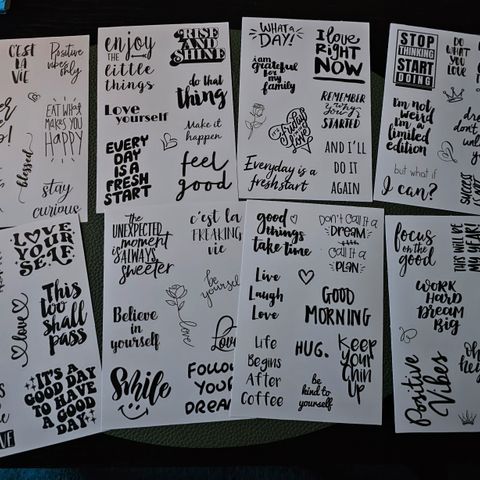 C'EST
LA
VIE
Positive
vibes
only
EAT WHAT
MAKES YOU
HAPPY
blessed
stay
curious
enjoy
THE
little
things
RISE
AND
SHINE
do that
thing
Love
yourself
Make it
happen
EVERY
DAY
IS A
FRESH
START
feel
good
WHAT A
DAY!
I love
RIGHT
NOW
i am
grateful
for my
family
REMEMBER
why you
STARTED
it's
Friday
Love
AND I'LL
DO IT
AGAIN
Everyday is a
fresh start
STOP
THINKING
START
DOING
DO
WHAT
YOU
LOVE
I'm not
weird
I'm a
limited
edition
but what if
I can?
LOVE
YOUR
SELF
love
This
too
shall
pass
IT'S A
GOOD DAY
TO HAVE
A GOOD
DAY
the
UNEXPECTED
moment
IS ALWAYS
sweeter
c'est la
FREAKING
vie
be
yourself
Believe
in
yourself
Love
Smile
FOLLOW
YOUR
DREAM
good
things
take time
Don't Call It a
DREAM
Call it a
PLAN
Live
Laugh
Love
GOOD
MORNING
Life
Begins
After
Coffee
HUG.
be
kind to
yourself
Keep
your
chin
up
focus
on the
good
THIS WILL BE
MY YEAR!
WORK
HARD
DREAM
BIG
Positive
Vibes